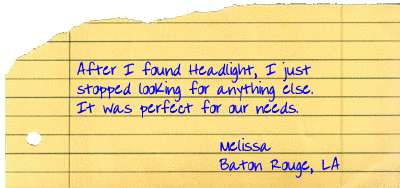 After I found Headlight, I just
stopped looking for anything else.
It was perfect for our needs.
Melissa
Baton Rouge, LA